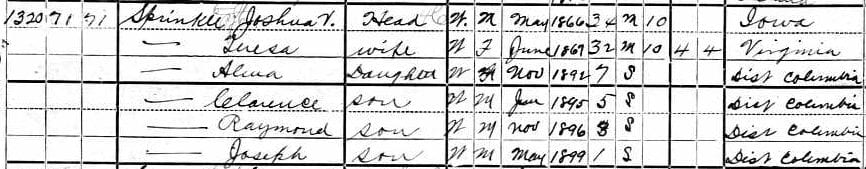 1320 71 71 Sprinkle, Joshua V. Head W M May 1866 34 M 10 Iowa
— Teresa wife W F June 1867 32 M 10 4 4 Virginia
— Alma Daughter W F Nov 1892 7 S Dist Columbia
— Clarence son W M Jan 1895 5 S Dist Columbia
— Raymond son W M nov 1896 3 S Dist Columbia
— Joseph son W M May 1899 1 S Dist Columbia